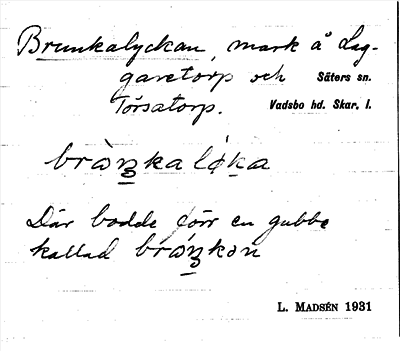 Brunkalyckan, mark å Lag-
garetorp och Säters sn.
Torsatorp. Vadsbo hd. Skar. l.
bròŋkalø̀ka
Där bodde förr en gubbe
kallad bróŋkən
L. MADSÉN 1931